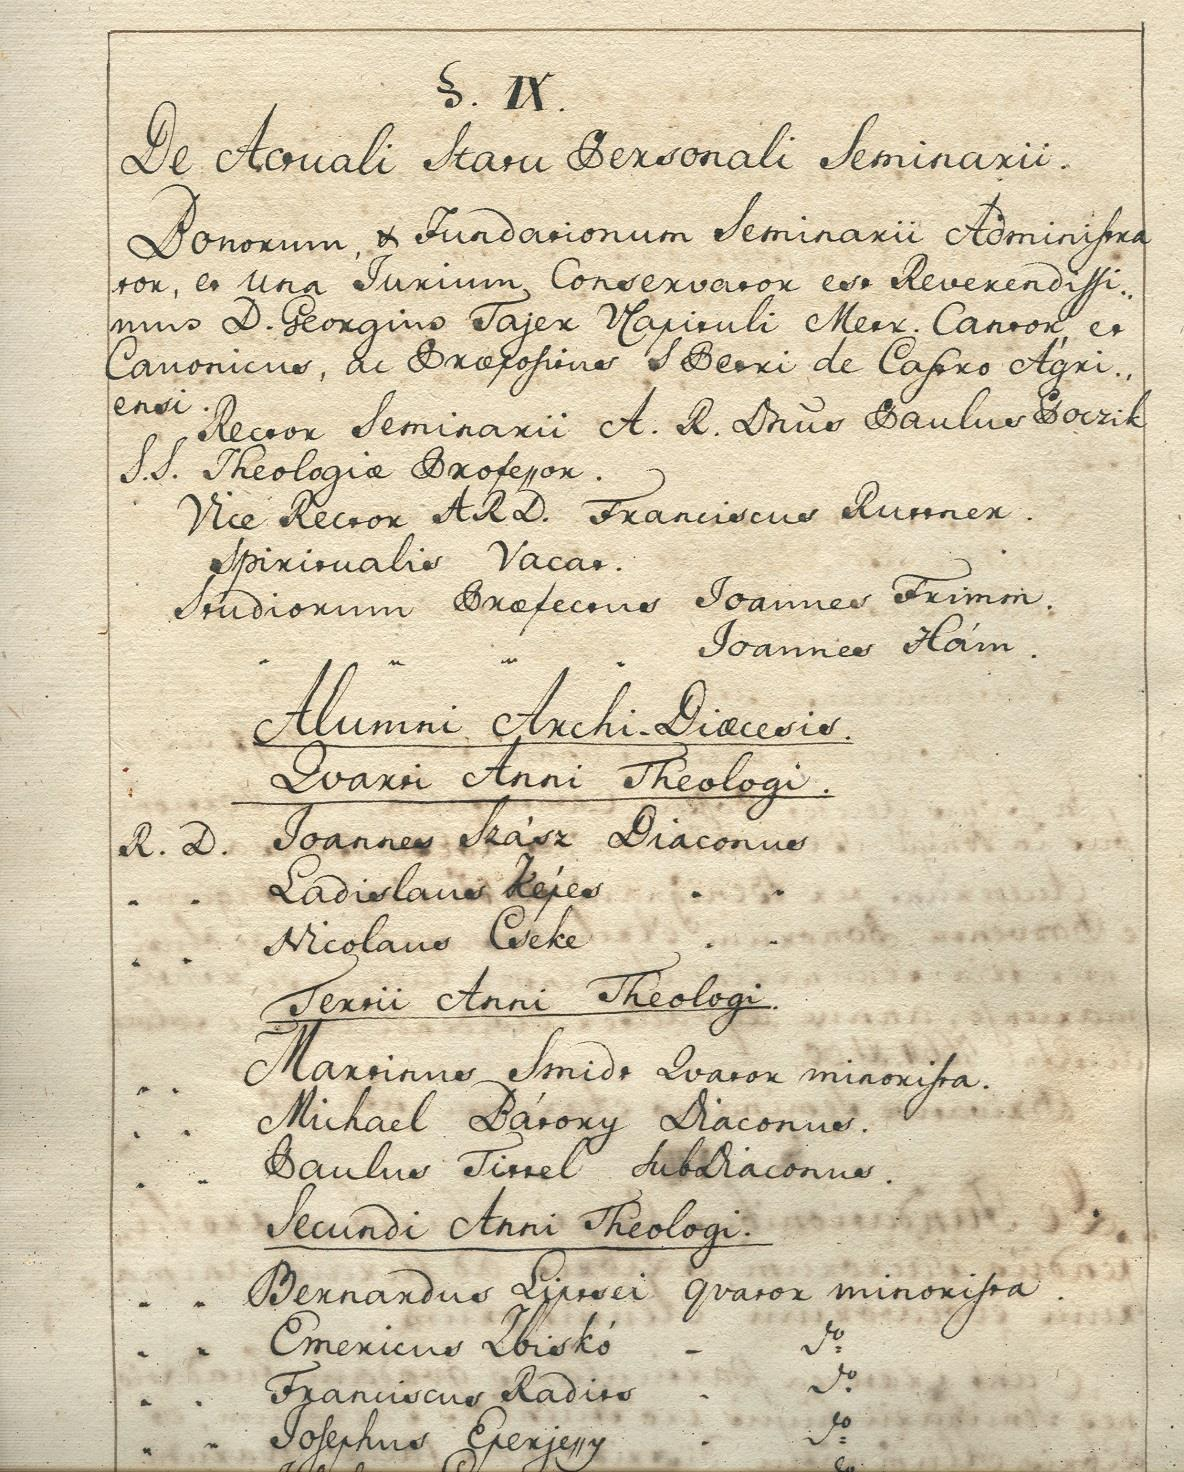 §. IX.
De Actuali Statu Personali Seminarii.
Bonorum, & Fundationum Seminarii Administra
tor, et una Jurium Conservator est Reverendissi.,
mus D. Georgius Tajer Capituli Metr. Cantor, et
Canonicus, ac Præpositus S Petri de Castro Agri.,
ensi.
Rector Seminarii A. R. Dnūs Paulus Goczik
S.S. Theologiæ Professor.
Vice Rector A R D. Franciscus Ruttner.
Spiritualis Vacat.
Studiorum Præfectus Joannes Frimm.
" " " " Joannes Hám.
Alumni Archi-Diæcesis.
Qvarti Anni Theologi.
R. D. Joannes Szász Diaconus
" " Ladislaus Képes " "
" " Nicolaus Cseke " "
Tertii Anni Theologi.
" " Martinus Smidt Qvator minorista.
" " Michael Bátory Diaconus.
" " Paulus Tittel subDiaconus.
Secundi Anni Theologi.
" " Bernardus Liptsei qvator minorista.
" " Emericus Zbiskó - do:
" " Franciscus Radits - do:
" " Josephus Eperjessy - do: